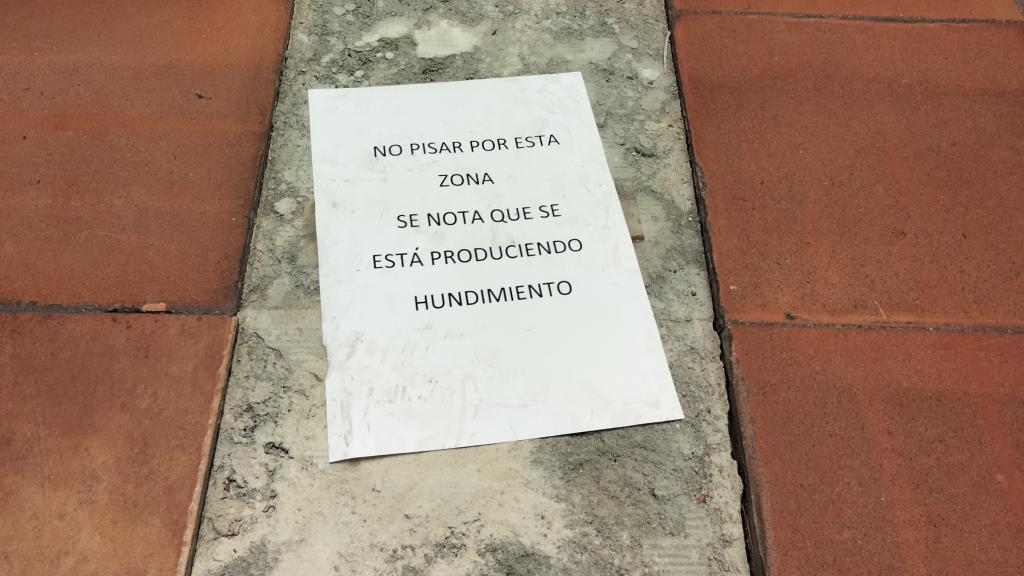 NO PISAR POR ESTA
ZONA
SE NOTA QUE SE
ESTÁ PRODUCIENDO
HUNDIMIENTO